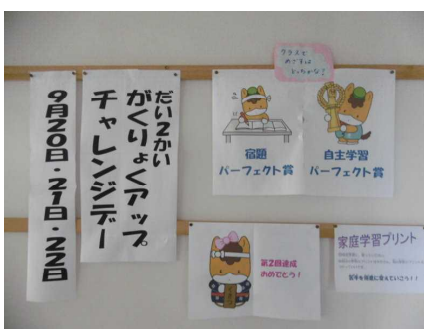 だい2かい
がくりょくアップ
チャレンジデー
9月20日・21日・22日
クラスで
めざすは
どっちかな？
宿題
パーフェクト賞
自主学習
パーフェクト賞
第2回達成
おめでとう！
家庭学習プリント